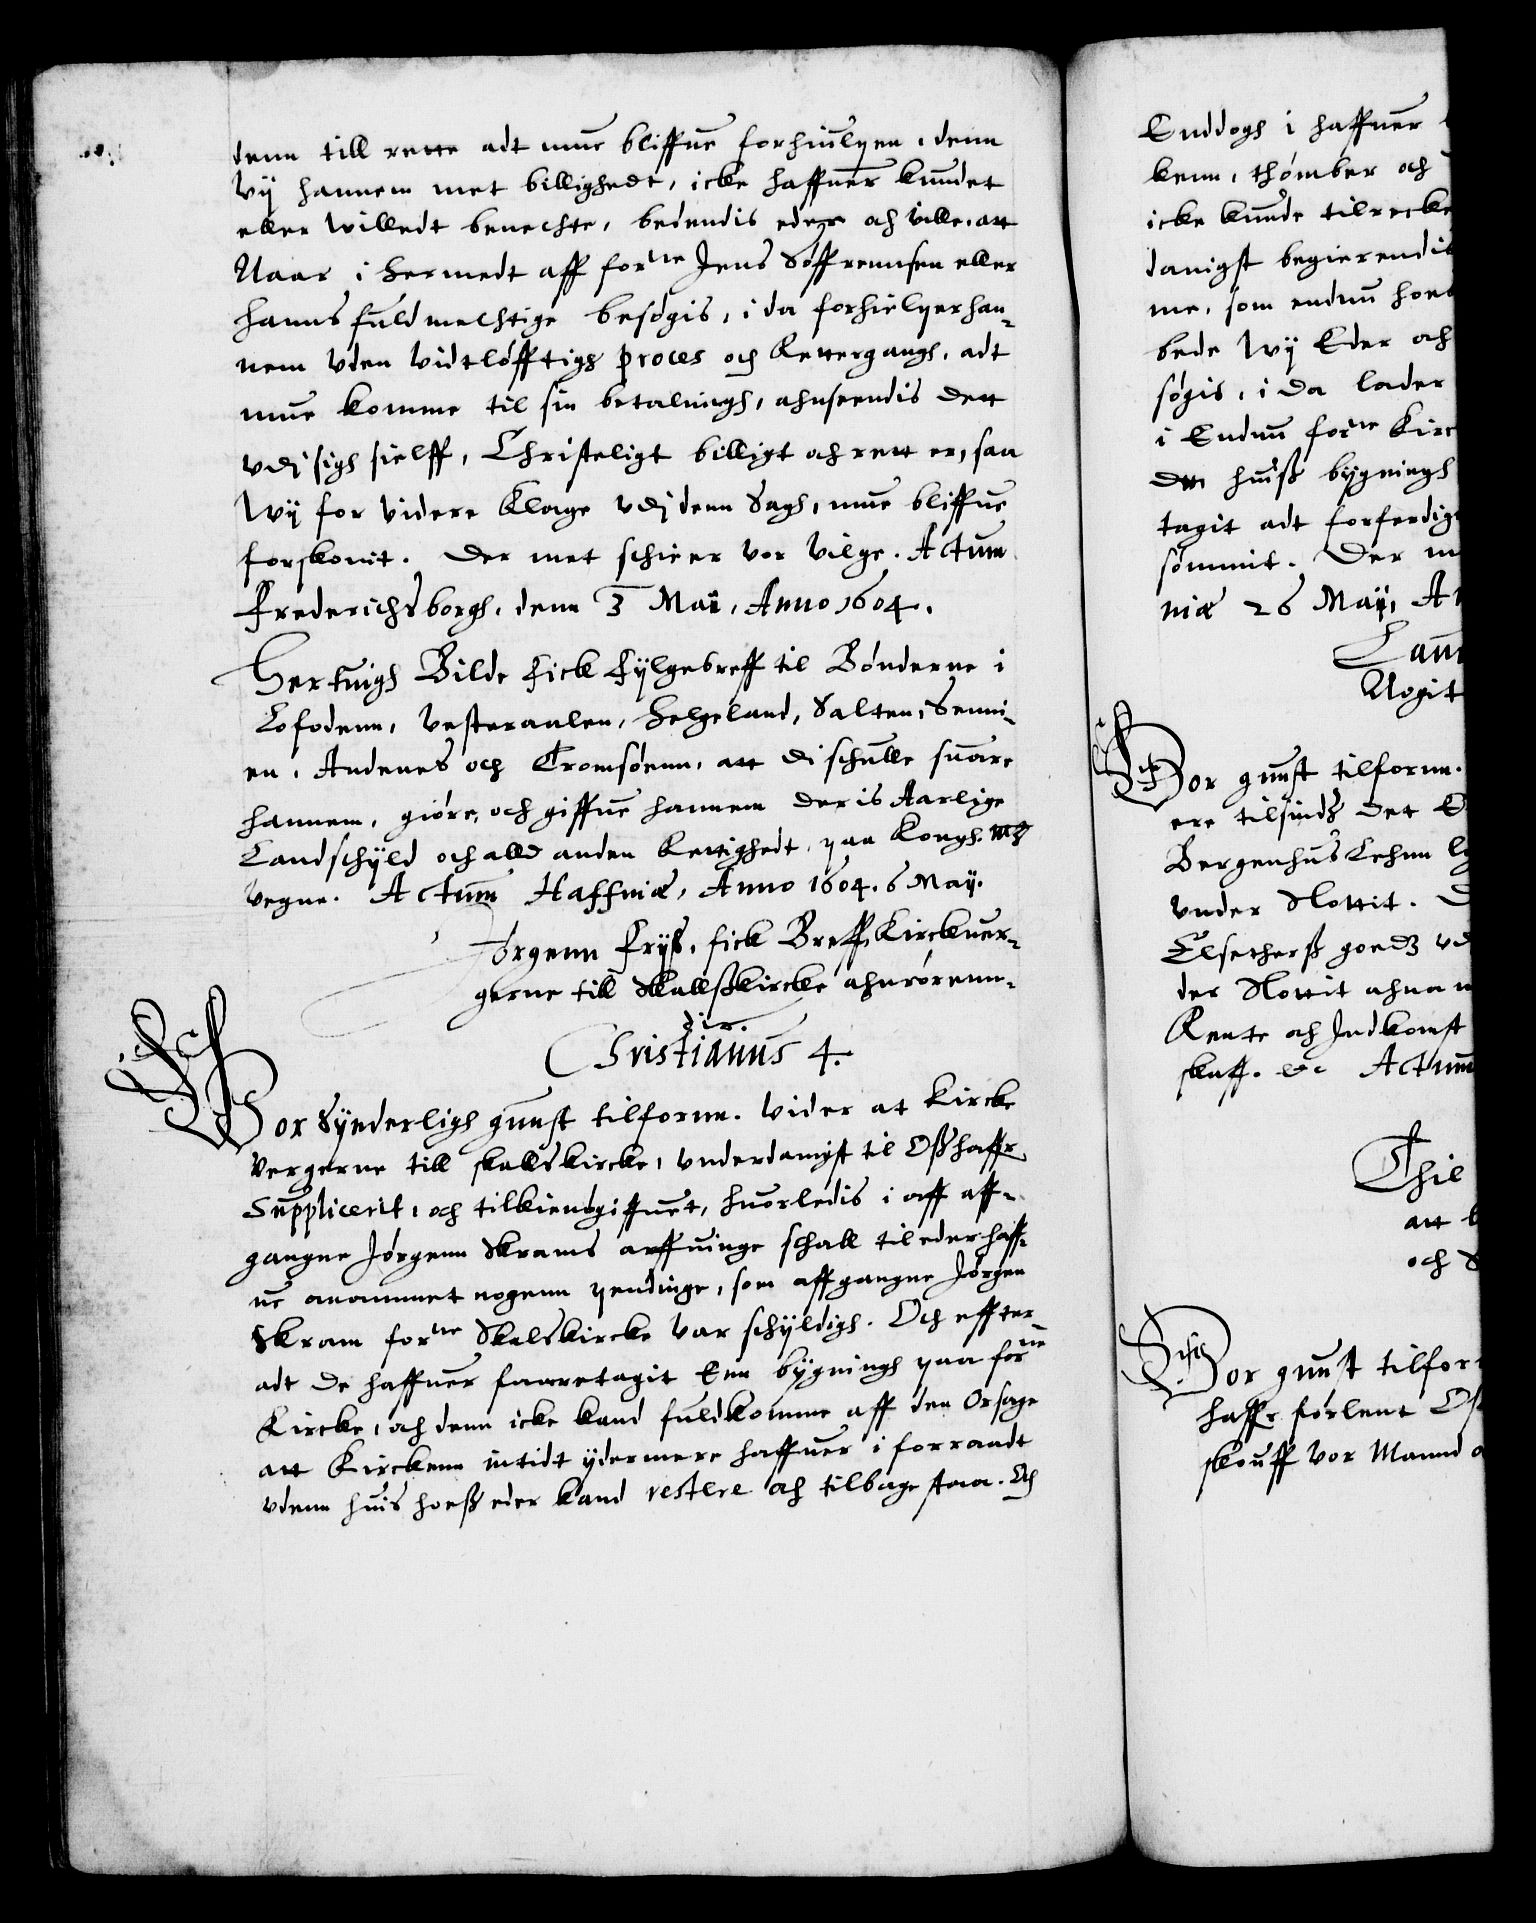 denn till rette adt mue bliffue forhiulpen, denn
Wij hannem met billighedt, icke haffuer kundet
eller willedt benechte, bedendis eder och wille, att
Naar i hermedt aff forne Jens Søffrennsen eller
hanns fuldmechtige besøgis, i da forhielper han¬
nem uden vidtløfftigh proces och Rettergangh, adt
mue komme til sin betalningh, ahnseendis dett
udj sigh sielff, Christeligt billigt och rett er, saa
Wij for videre Klage udj denn Sagh, mue bliffue
forskonit. Der met schieer vor vilge. Actum
Frederichsborgh, denn 3 Maii, Anno 1604.
Hertuigh Bilde Fick Fylgebreff til Bønderne i
Lofodenn, Vesteraalen, Helgeland, Salten, Senni¬
en, Andenes och Tromsøenn, att di schulle suare
hannem, giøre, och giffue hannem deris Aarlige
Landschyld och alld anden Rettighedt, paa Kongh. Mtz
vegne. Actum Haffniæ, Anno 1604. 6 Maij.
Jørgenn Fryß, fick Breff, Kirckuer¬
gerne till Skallßkircke ahnrørenn¬
dis.
Christianus 4.
Vor Synderligh gunst tilfornn. Vider at Kircke
Vergerne till skallskircke, underdanigst til Oß haffr
Suppliceritt, och tilkiendgiffuet, huorledis i aff aff¬
gangne Jørgenn Skrams arffuinge schall til eder haff¬
ue anammet nogenn pendinge, som affgangne Jørgen
Skram forne Skalskircke var schyldigh. Och effter
adt de haffuer faaretagit Enn bygningh paa forne
Kircke, och denn icke kand fuldkomme aff den Orsage
att Kirckenn intidt ydermere haffuer i forraadt
udenn huis hoeß eder kand restere och tilbage staa. Och
Enddogh i haffuer
kenn, thømber och
icke kunde tilrecke
danigst begierendis
me, som endnu hoes
bede Wij Eder och
søgis, i da lader
i Endnu forne Kirc
huiß bygningh
tagit adt forferdig
sømmit. Der m
niæ 26 Maij, A
Nogit
Vor gunst tilfornn.
ere tilsindz det E
Bergenhus Lehnn
under Slottit. D
Elsetherß goedz ud
der Slottit ahna
Rente och Indkomst
skaff. &c Actum
Thil
att
och S
Vor gunst tilfor
haffr forlent
skouff vor Mannd